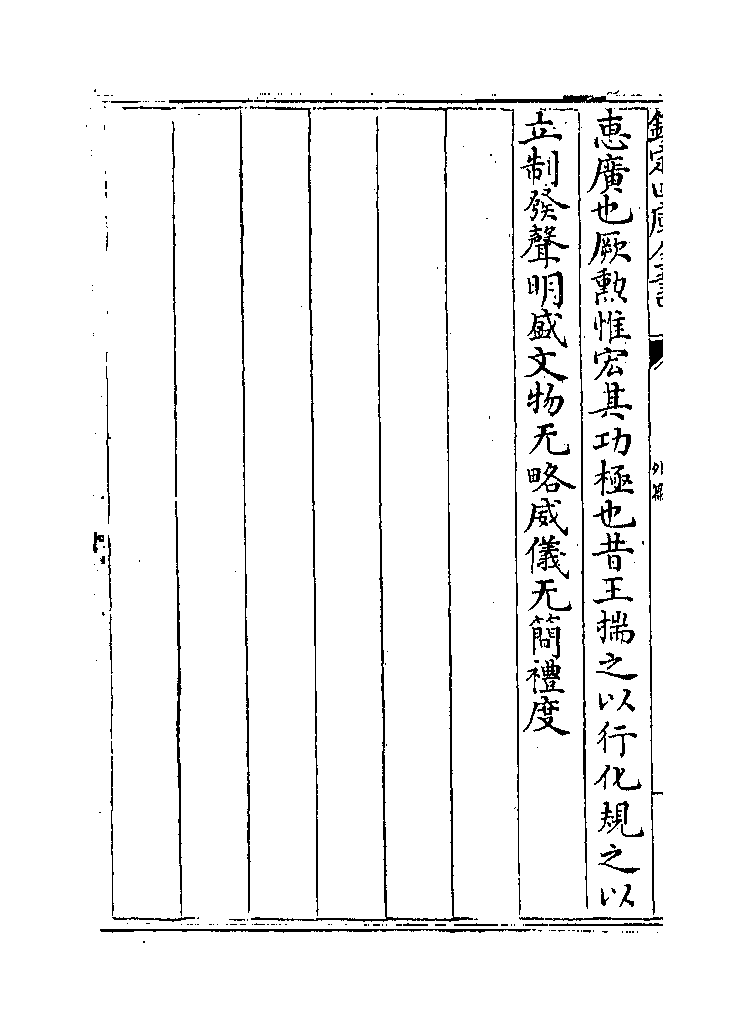 惠廣也厥勲惟宏其功極也昔王揣之以行化規之以
立制發聲明盛文物无略威儀无簡禮度